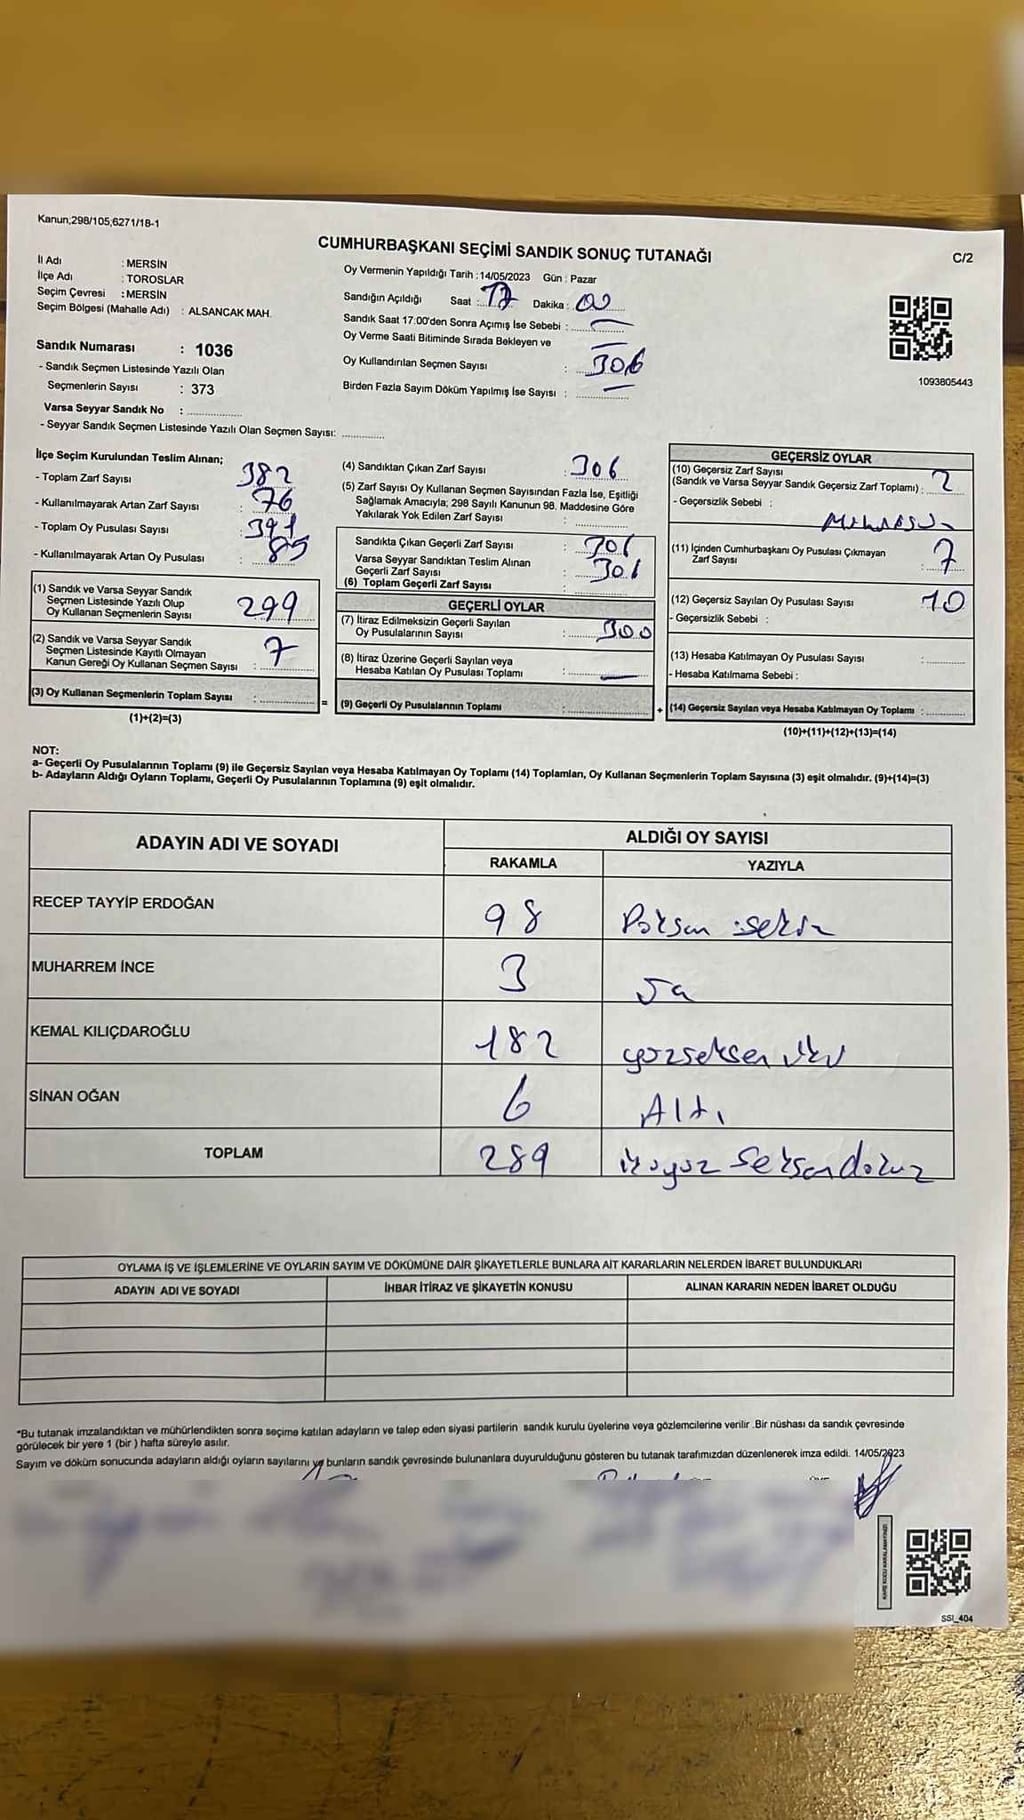 Kanun,298/105,6271/18-1
CUMHURBAŞKANI SEÇİMİ SANDIK SONUÇ TUTANAĞI
C/2
İl Adı : MERSİN
İlçe Adı : TOROSLAR
Seçim Çevresi : MERSİN
Seçim Bölgesi (Mahalle Adı) : ALSANCAK MAH.
Sandık Numarası : 1036
- Sandık Seçmen Listesinde Yazılı Olan
Seçmenlerin Sayısı : 373
Varsa Seyyar Sandık No :
- Seyyar Sandık Seçmen Listesinde Yazılı Olan Seçmen Sayısı:
Oy Vermenin Yapıldığı Tarih : 14/05/2023 Gün : Pazar
Sandığın Açıldığı Saat : 17 Dakika : 00
Sandık Saat 17:00'den Sonra Açımış İse Sebebi :
Oy Verme Saati Bitiminde Sırada Bekleyen ve
Oy Kullandırılan Seçmen Sayısı : 306
Birden Fazla Sayım Döküm Yapılmış İse Sayısı :
1093805443
İlçe Seçim Kurulundan Teslim Alınan;
- Toplam Zarf Sayısı 382
- Kullanılmayarak Artan Zarf Sayısı : 76
- Toplam Oy Pusulası Sayısı : 391
- Kullanılmayarak Artan Oy Pusulası : 85
(1) Sandık ve Varsa Seyyar Sandık
Seçmen Listesinde Yazılı Olup
Oy Kullanan Seçmenlerin Sayısı 299
(2) Sandık ve Varsa Seyyar Sandık
Seçmen Listesinde Kayıtlı Olmayan
Kanun Gereği Oy Kullanan Seçmen Sayısı : 7
(3) Oy Kullanan Seçmenlerin Toplam Sayısı :
(1)+(2)=(3)
=
(4) Sandıktan Çıkan Zarf Sayısı : 306
(5) Zarf Sayısı Oy Kullanan Seçmen Sayısından Fazla İse, Eşitliği
Sağlamak Amacıyla; 298 Sayılı Kanunun 98. Maddesine Göre
Yakılarak Yok Edilen Zarf Sayısı :
Sandıkta Çıkan Geçerli Zarf Sayısı : 306
Varsa Seyyar Sandıktan Teslim Alınan
Geçerli Zarf Sayısı : 306
(6) Toplam Geçerli Zarf Sayısı :
GEÇERLİ OYLAR
(7) İtiraz Edilmeksizin Geçerli Sayılan
Oy Pusulalarının Sayısı : 300
(8) İtiraz Üzerine Geçerli Sayılan veya
Hesaba Katılan Oy Pusulası Toplamı :
(9) Geçerli Oy Pusulalarının Toplamı :
+
GEÇERSİZ OYLAR
(10) Geçersiz Zarf Sayısı
(Sandık ve Varsa Seyyar Sandık Geçersiz Zarf Toplamı) : 2
- Geçersizlik Sebebi :
(11) İçinden Cumhurbaşkanı Oy Pusulası Çıkmayan
Zarf Sayısı : 7
(12) Geçersiz Sayılan Oy Pusulası Sayısı : 10
- Geçersizlik Sebebi :
(13) Hesaba Katılmayan Oy Pusulası Sayısı :
- Hesaba Katılmama Sebebi :
(14) Geçersiz Sayılan veya Hesaba Katılmayan Oy Toplamı :
(10)+(11)+(12)+(13)=(14)
NOT:
a- Geçerli Oy Pusulalarının Toplamı (9) ile Geçersiz Sayılan veya Hesaba Katılmayan Oy Toplamı (14) Toplamları, Oy Kullanan Seçmenlerin Toplam Sayısına (3) eşit olmalıdır. (9)+(14)=(3)
b- Adayların Aldığı Oyların Toplamı, Geçerli Oy Pusulalarının Toplamına (9) eşit olmalıdır.
ADAYIN ADI VE SOYADI ALDIĞI OY SAYISI
RAKAMLA YAZIYLA
RECEP TAYYİP ERDOĞAN 98 Doksan sekiz
MUHARREM İNCE 3
KEMAL KILIÇDAROĞLU 182 yüzseksen iki
SİNAN OĞAN 6 Altı
TOPLAM 289 ikiyüz seksendokuz
OYLAMA İŞ VE İŞLEMLERİNE VE OYLARIN SAYIM VE DÖKÜMÜNE DAİR ŞİKAYETLERLE BUNLARA AİT KARARLARIN NELERDEN İBARET BULUNDUKLARI
ADAYIN ADI VE SOYADI İHBAR İTİRAZ VE ŞİKAYETİN KONUSU ALINAN KARARIN NEDEN İBARET OLDUĞU
*Bu tutanak imzalandıktan ve mühürlendikten sonra seçime katılan adayların ve talep eden siyasi partilerin sandık kurulu üyelerine veya gözlemcilerine verilir .Bir nüshası da sandık çevresinde
görülecek bir yere 1 (bir ) hafta süreyle asılır.
Sayım ve döküm sonucunda adayların aldığı oyların sayılarını ve bunların sandık çevresinde bulunanlara duyurulduğunu gösteren bu tutanak tarafımızdan düzenlenerek imza edildi. 14/05/2023
SSI_404